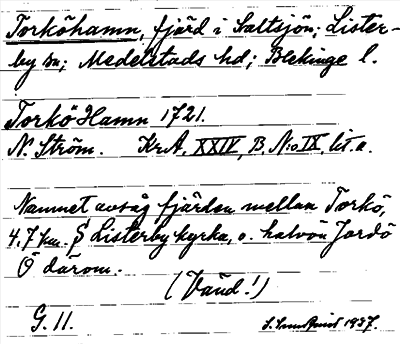 Torköhamn, fjärd i Saltsjön; Lister-
by sn; Medelstads hd; Blekinge l.
Torkö Hamn 1721.
N. Ström. Kr.A. XXIV, B. N:o IX, lit. a.
Namnet avsåg fjärden mellan Torkö,
4,7 km. S Listerby kyrka, o. halvön Jordö
Ö därom.
(Vänd!)
G. 11. 1937.